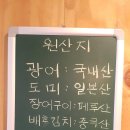 원산지
광어 : 국내산
도미 : 일본산
장어구이 : 페루산
배추김치 : 중국산